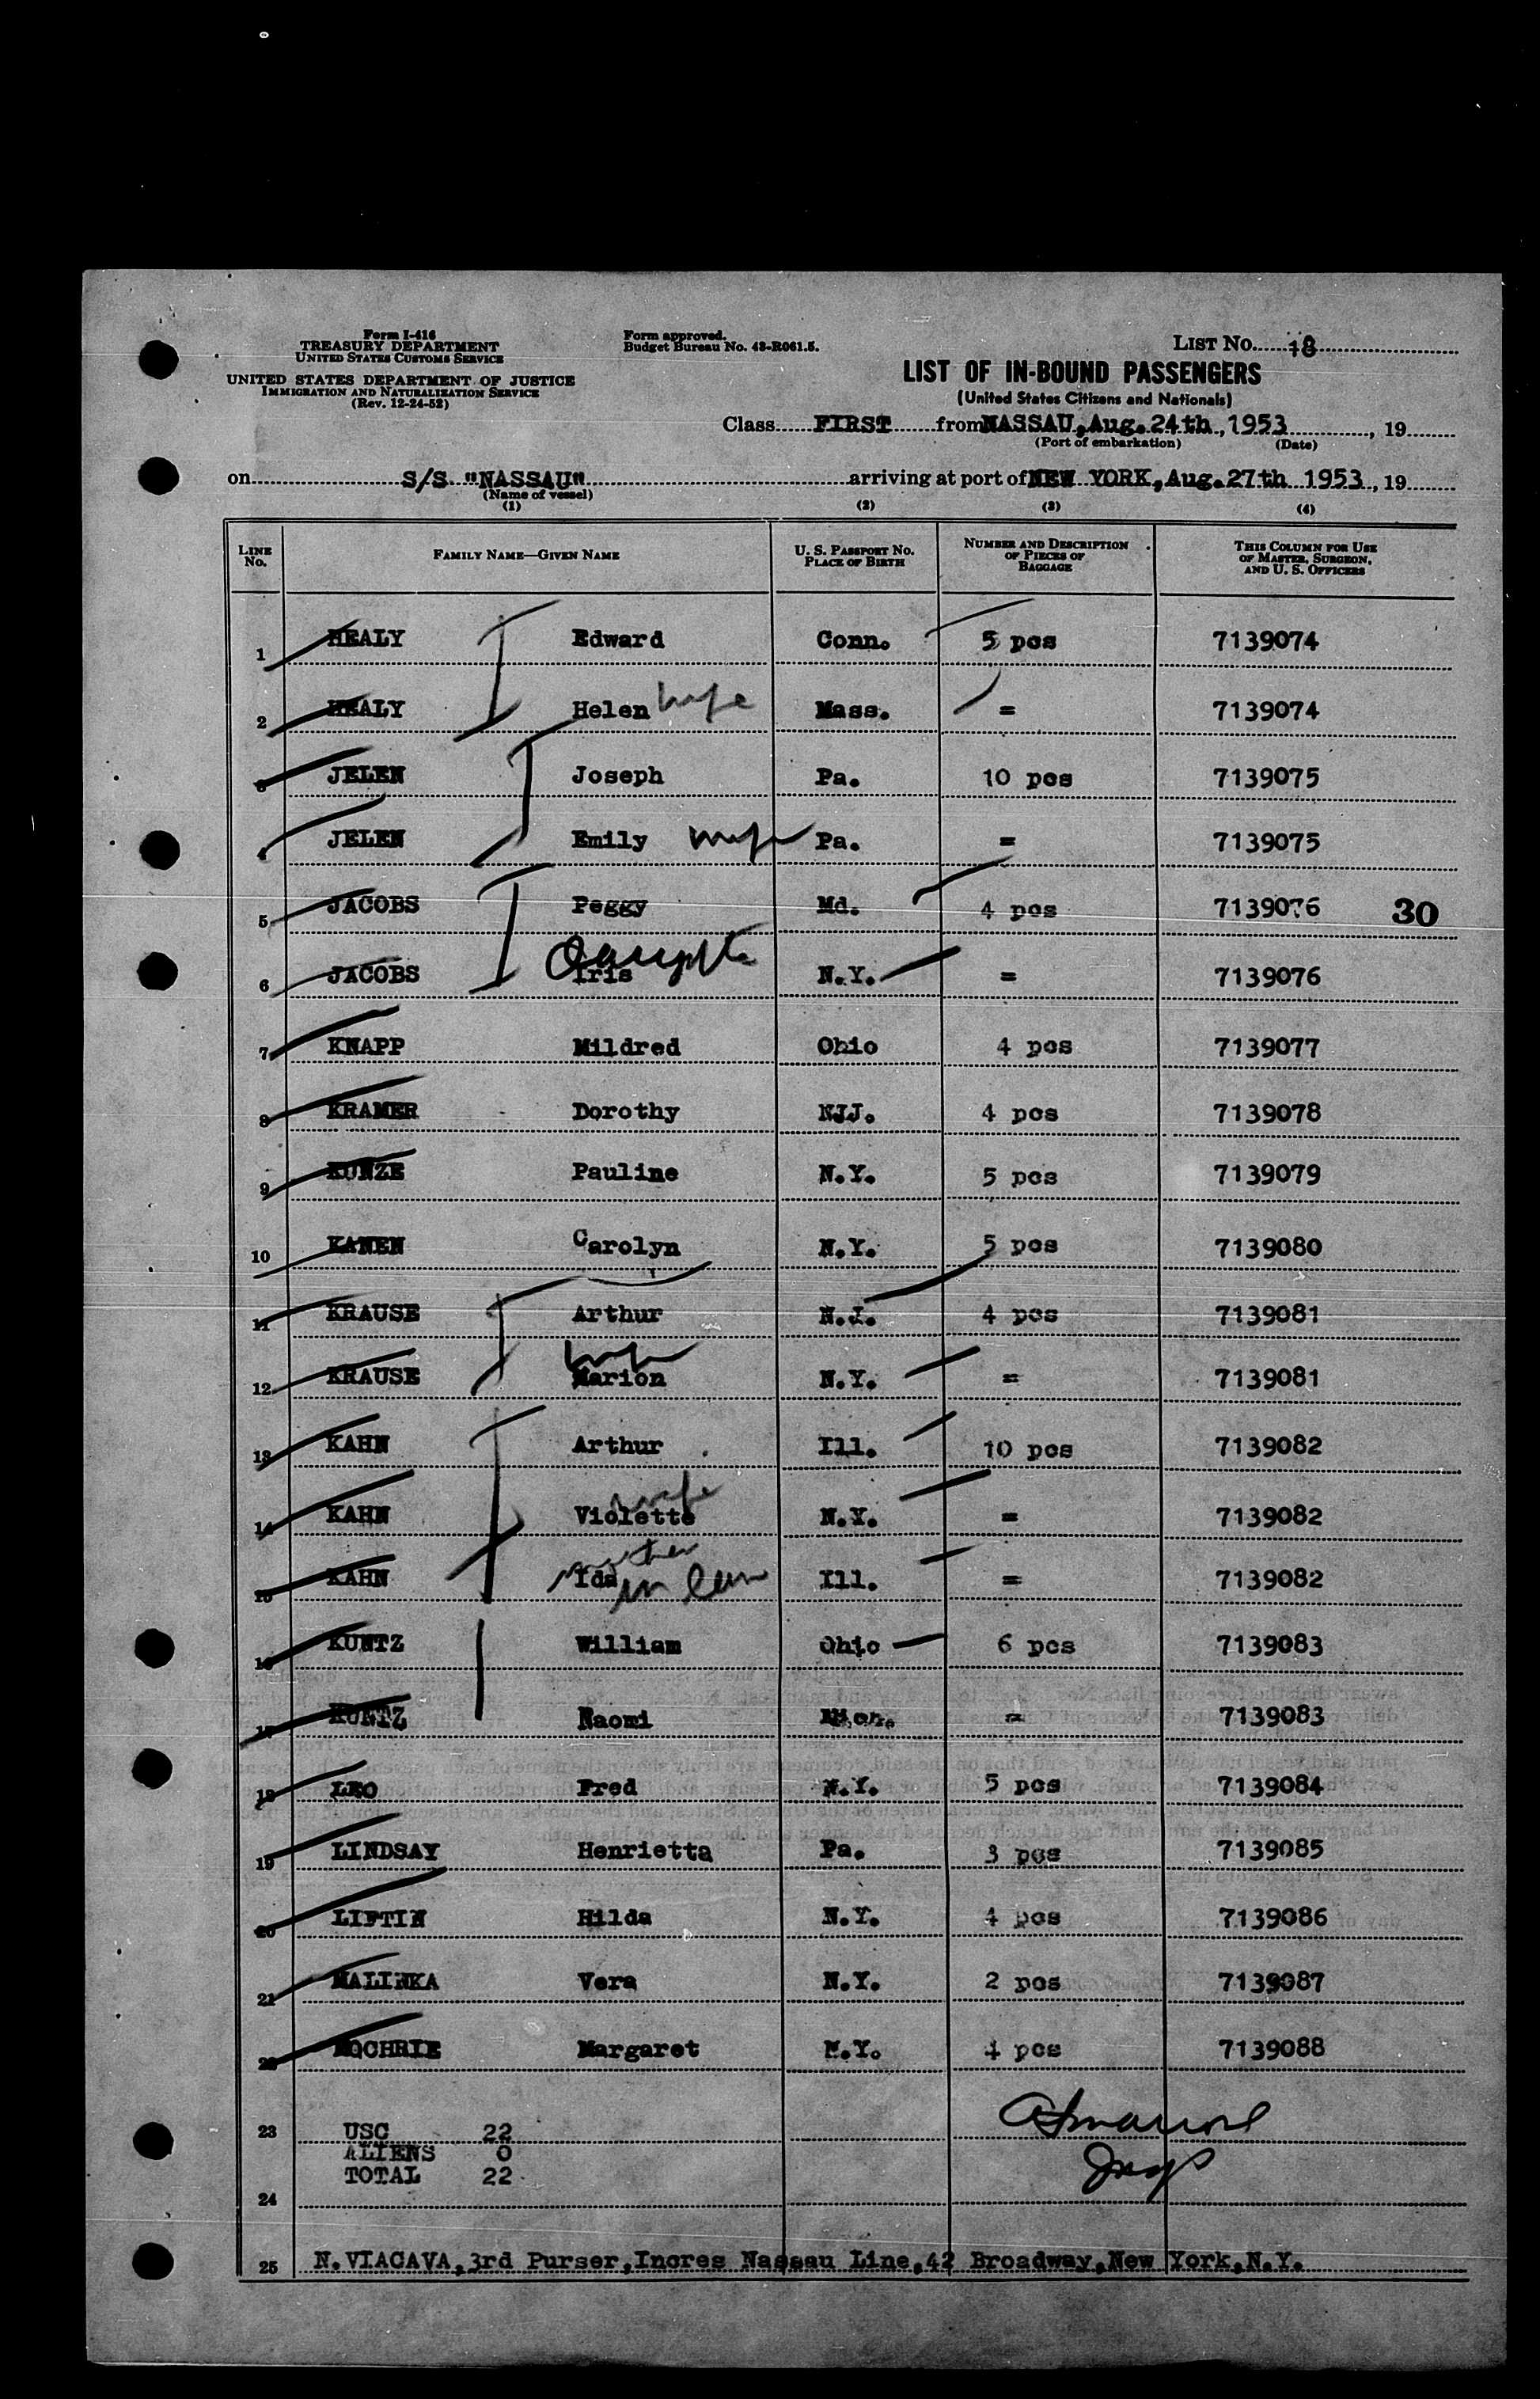 Form I-416
TREASURY DEPARTMENT
UNITED STATES CUSTOMS SERVICE
UNITED STATES DEPARTMENT OF JUSTICE
IMMIGRATION AND NATURALIZATION SERVICE
(Rev. 12-24-52)
Form approved.
Budget Bureau No. 43-R061.5.
LIST No. 18
LIST OF IN-BOUND PASSENGERS
(United States Citizens and Nationals)
Class FIRST from NASSAU, Aug. 24th, 1953, 19
(Port of embarkation) (Date)
on S/S "NASSAU" arriving at port of NEW YORK, Aug. 27th 1953, 19
(Name of vessel)
(1) (2) (3) (4)
LINE No. FAMILY NAME—GIVEN NAME U. S. PASSPORT NO. PLACE OF BIRTH NUMBER AND DESCRIPTION OF PIECES OF BAGGAGE THIS COLUMN FOR USE OF MASTER, SURGEON, AND U. S. OFFICERS
1 HEALY Edward Conn. 5 pcs 7139074
2 HEALY Helen wife Mass. = 7139074
3 JELEN Joseph Pa. 10 pcs 7139075
4 JELEN Emily wife Pa. = 7139075
5 JACOBS Peggy Md. 4 pcs 7139076 30
6 JACOBS Iris daughter N.Y. = 7139076
7 KNAPP Mildred Ohio 4 pcs 7139077
8 KRAMER Dorothy NJJ. 4 pcs 7139078
9 KUNZE Pauline N.Y. 5 pcs 7139079
10 KANEN Carolyn N.Y. 5 pcs 7139080
11 KRAUSE Arthur N.J. 4 pcs 7139081
12 KRAUSE Marion wife N.Y. = 7139081
13 KAHN Arthur Ill. 10 pcs 7139082
14 KAHN Violette wife N.Y. = 7139082
15 KAHN Ida mother in law Ill. = 7139082
16 KUNTZ William Ohio 6 pcs 7139083
17 KUNTZ Naomi Mich. = 7139083
18 LEO Fred N.Y. 5 pcs 7139084
19 LINDSAY Henrietta Pa. 3 pcs 7139085
20 LIFTIN Hilda N.Y. 4 pcs 7139086
21 MALINKA Vera N.Y. 2 pcs 7139087
22 MOCHRIE Margaret N.Y. 4 pcs 7139088
23 USC 22
ALIENS 0
TOTAL 22
24
25 N. VIACAVA, 3rd Purser, Incres Nassau Line, 42 Broadway, New York, N.Y.